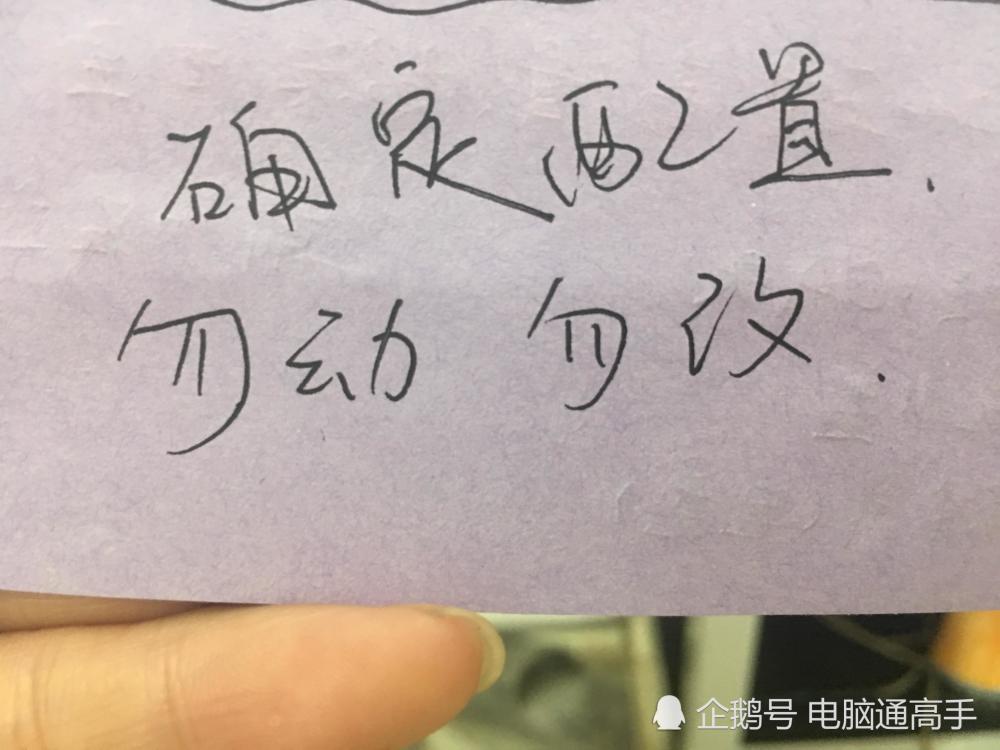 确定配置.
勿动 勿改.
企鹅号 电脑通高手